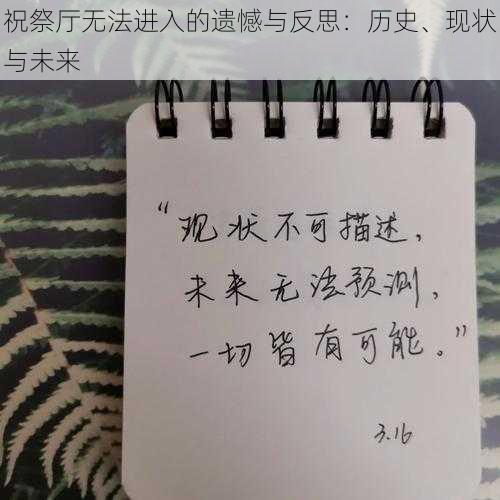 祝祭厅无法进入的遗憾与反思：历史、现状
与未来
“现状不可描述，
未来无法预测，
一切皆有可能。”
3.16